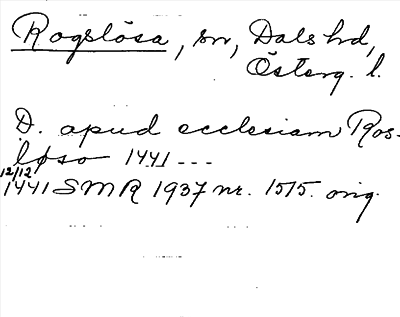 Rogslösa, sn, Dals hd,
Österg. l.
D. apud ecclesiam Ros-
løso 1441 ---
12/12
1441 SMR 1937 nr. 1515. orig.